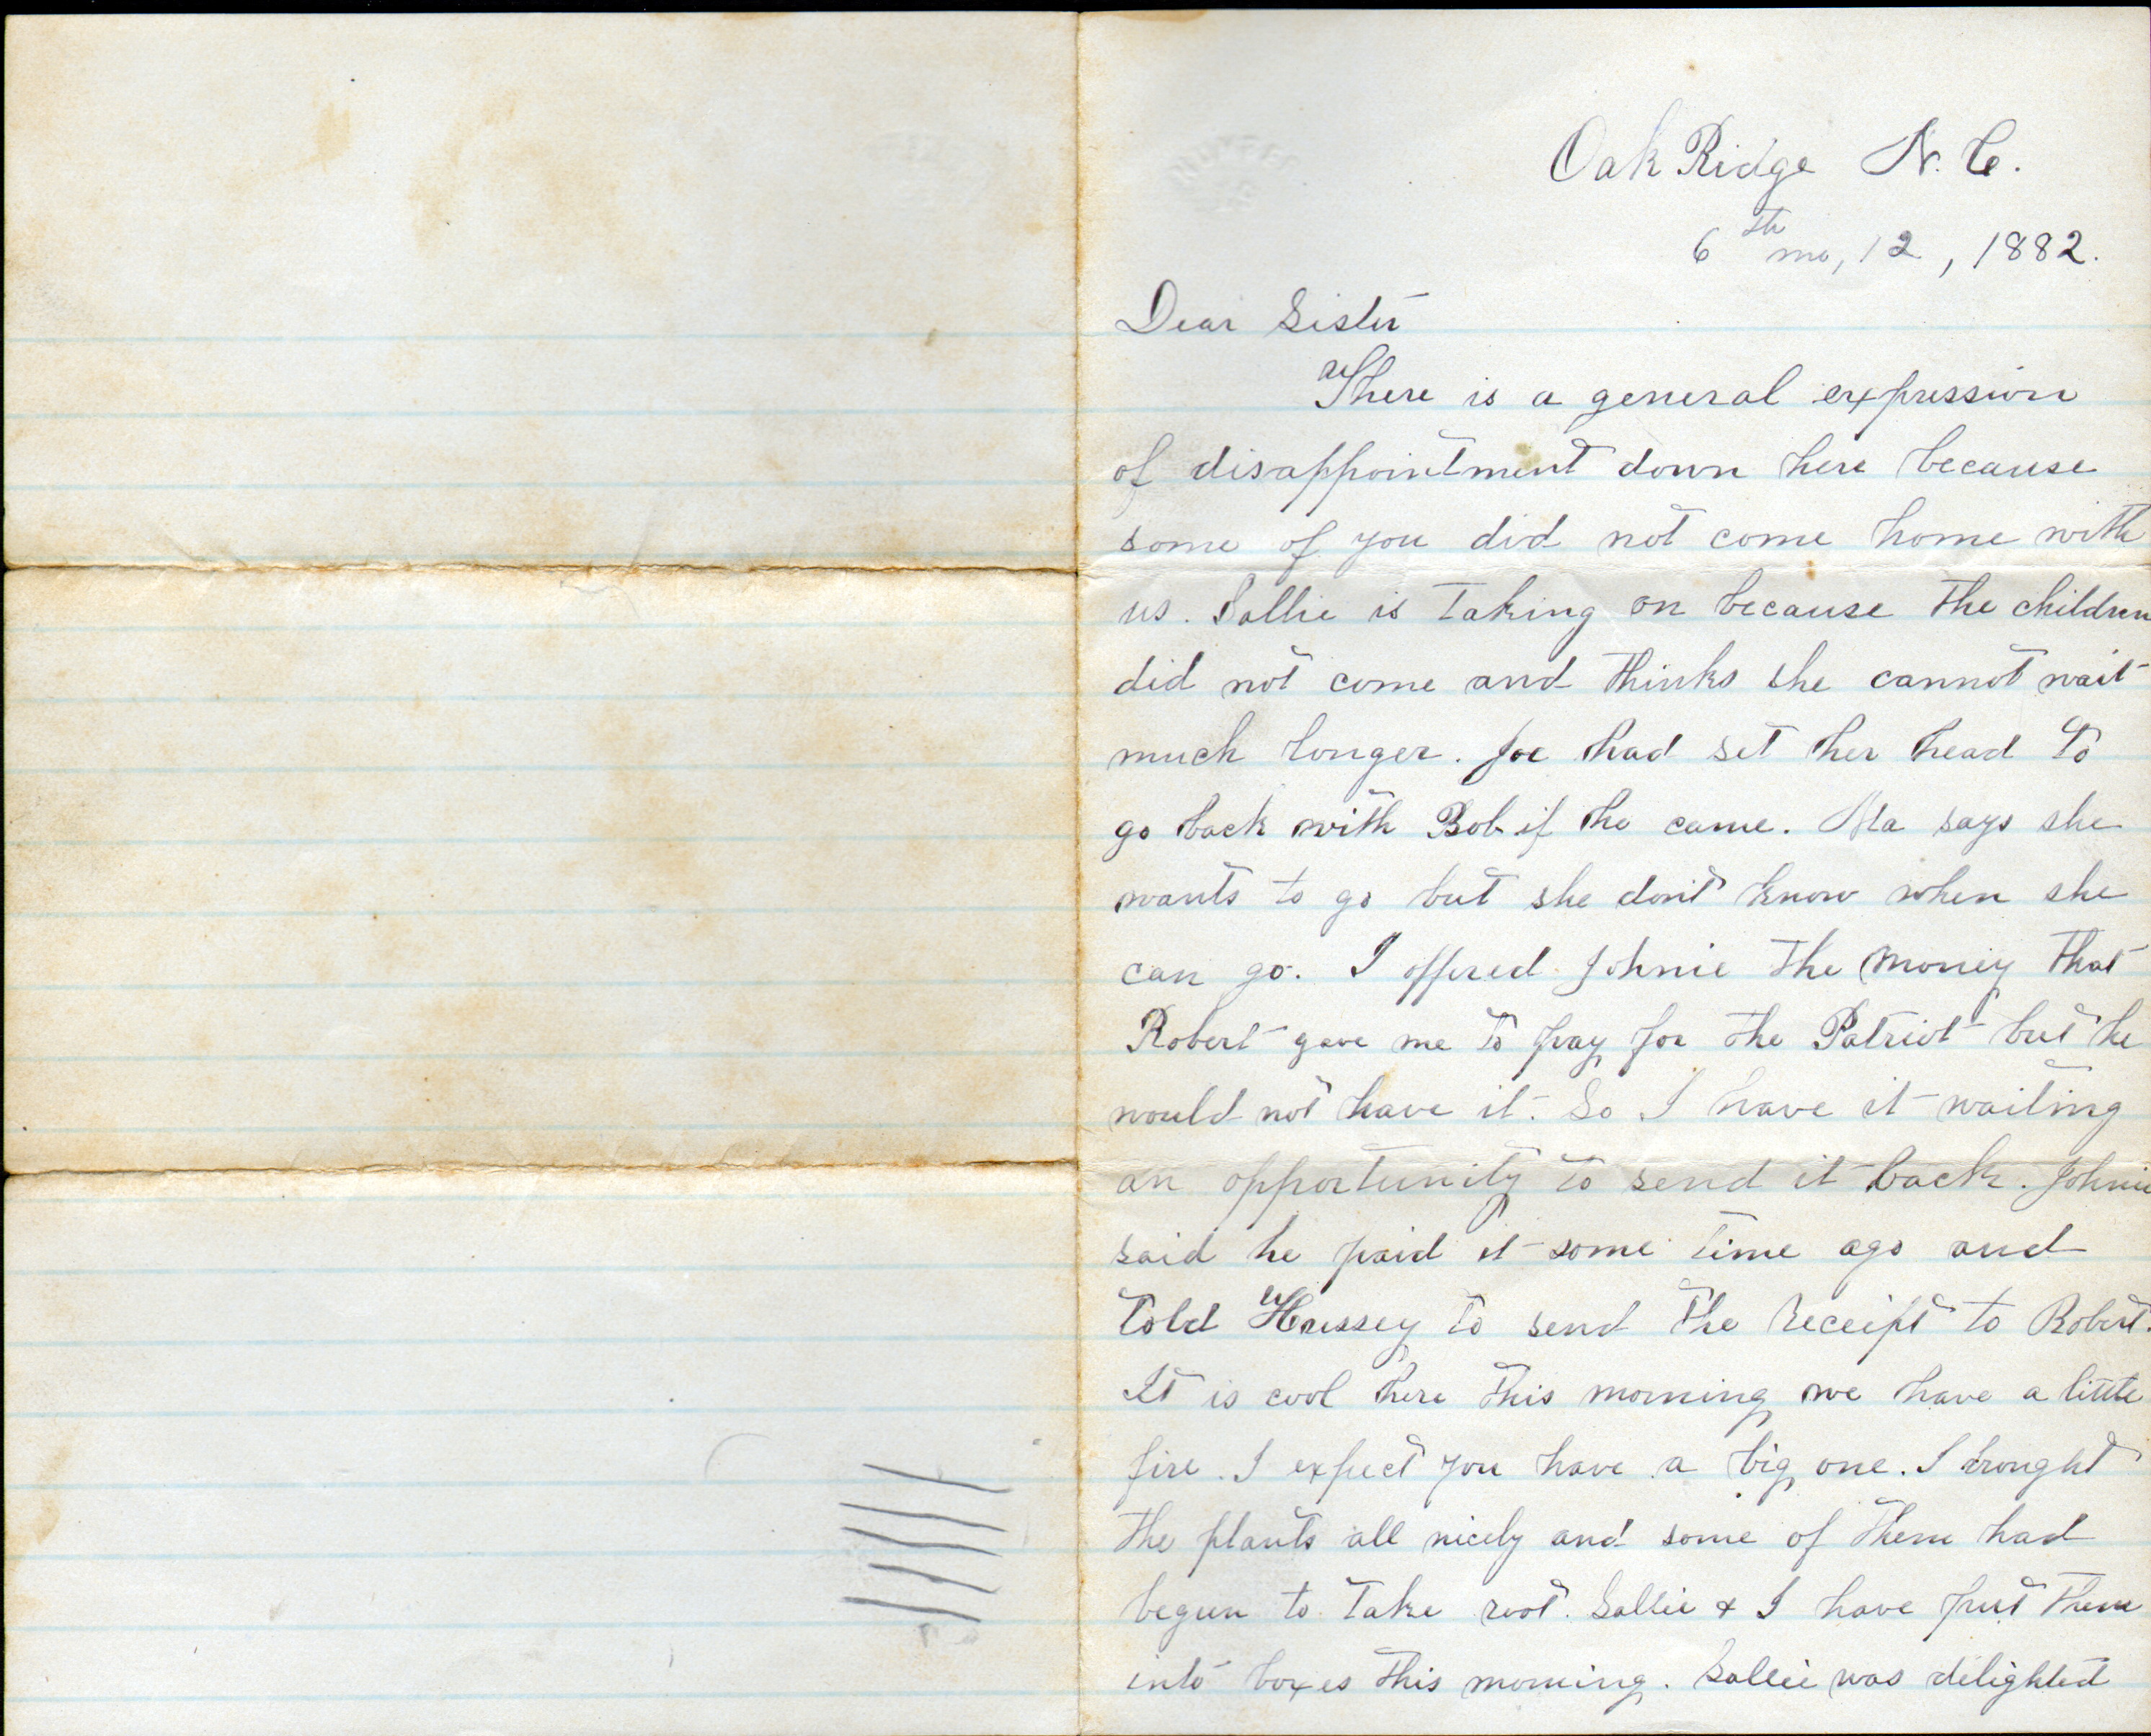 Oak Ridge N.C.
6th mo, 12, 1882.
Dear Sister
There is a general expression
of disappointment down here because
some of you did not come home with
us. Sallie is taking on because the children
did not come and thinks she cannot wait
much longer. Joe had set her head to
go back with Bob if he came. Ma says she
wants to go but she don't know when she
can go. I offered Johnie the money that
Robert gave me to pay for the Patriot but he
would not have it. So I have it waiting
an opportunity to send it back. Johnie
said he paid it some time ago and
told Hussey to send the receipt to Robert.
It is cool here this morning we have a little
fire. I expect you have a big one. I brought
the plants all nicely and some of them had
begun to take root. Sallie & I have put them
into boxes this morning. Sallie was delighted